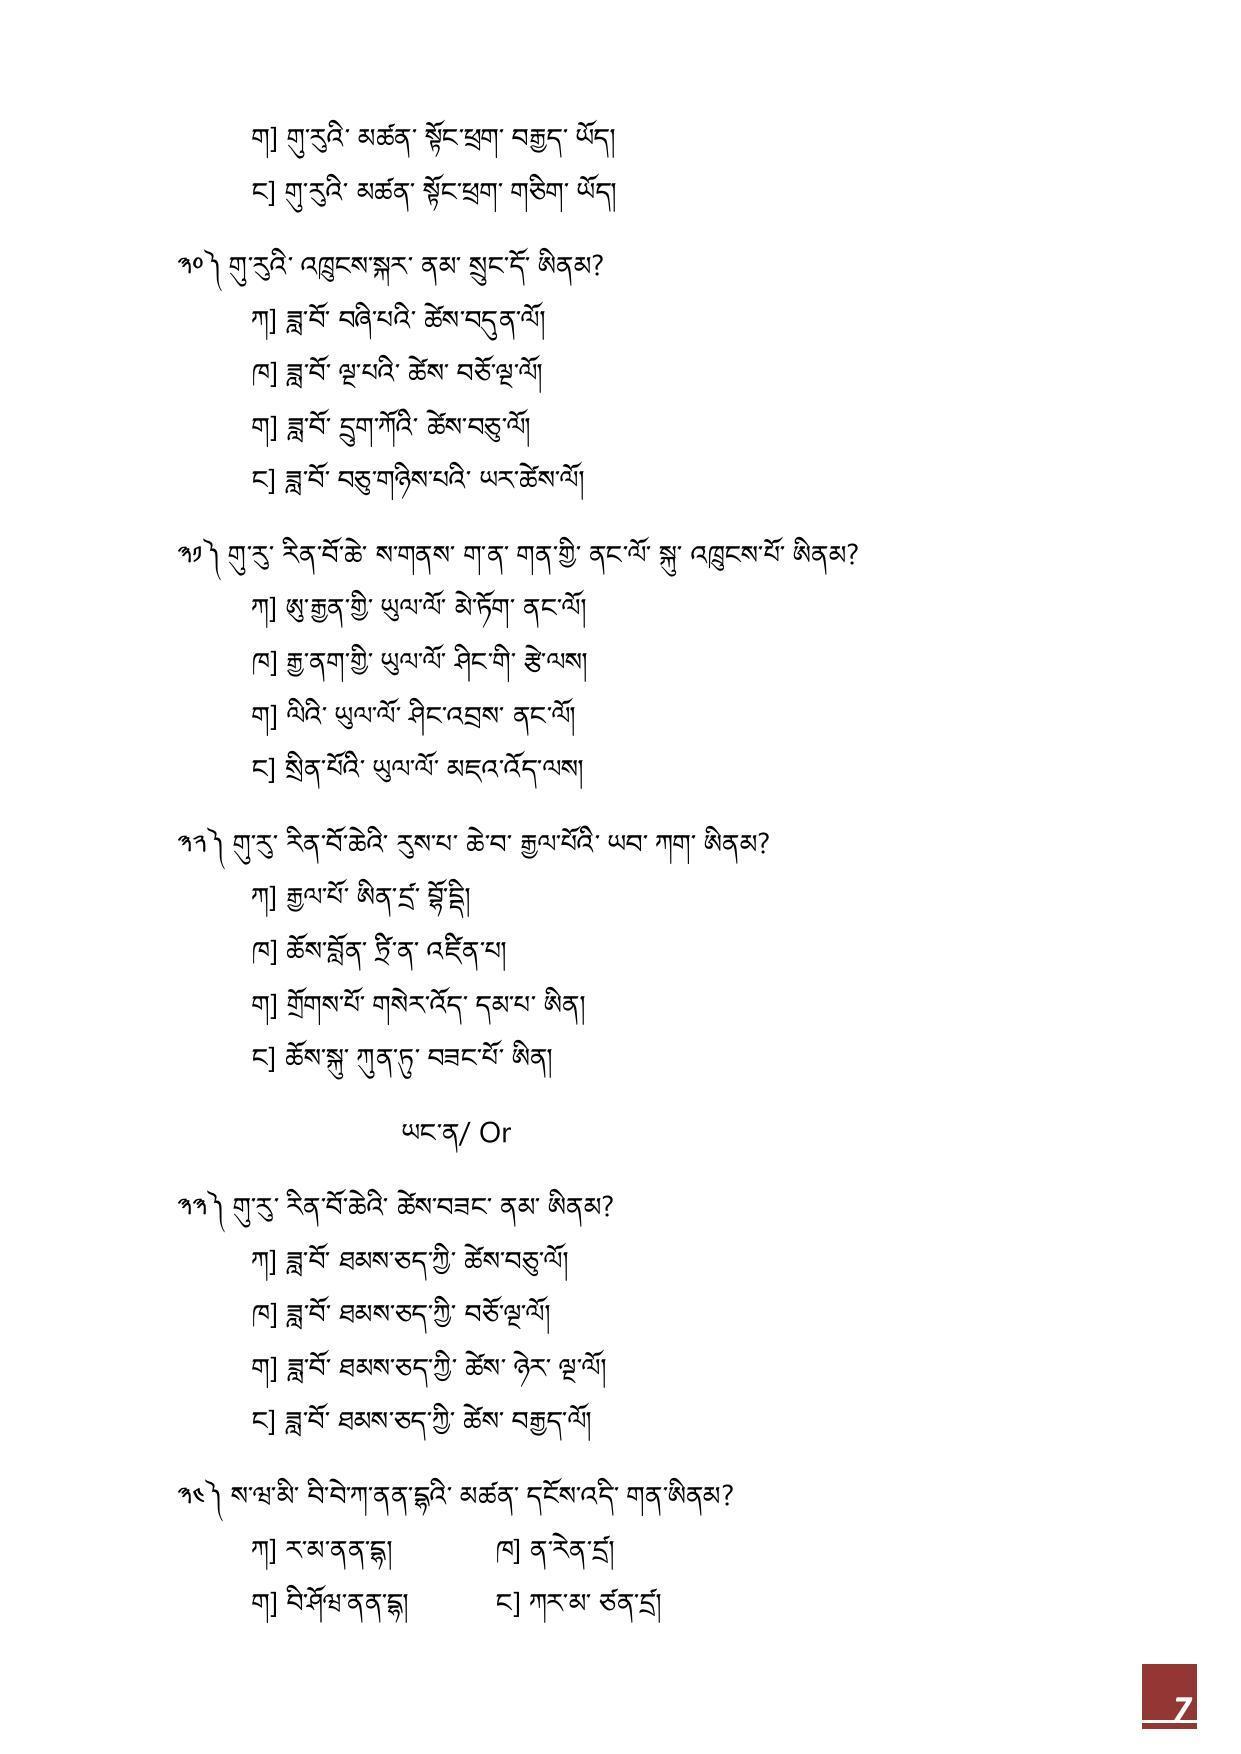 ག] གུ་རུའི་ མཚན་ སྟོང་ཕྲག་ བརྒྱད་ ཡོད།
ང] གུ་རུའི་ མཚན་ སྟོང་ཕྲག་ གཅིག་ ཡོད།
༣༠༽ གུ་རུའི་ འཁྲུངས་སྐར་ ནམ་ སྲུང་དོ་ ཨིནམ?
ཀ] ཟླ་བོ་ བཞི་པའི་ ཚེས་བདུན་ལོ།
ཁ] ཟླ་བོ་ ལྔ་པའི་ ཚེས་ བཅོ་ལྔ་ལོ།
ག] ཟླ་བོ་ དྲུག་ཀོའི་ ཚེས་བཅུ་ལོ།
ང] ཟླ་བོ་ བཅུ་གཉིས་པའི་ ཡར་ཚེས་ལོ།
༣༡༽ གུ་རུ་ རིན་བོ་ཆེ་ ས་གནས་ ག་ན་ གན་གྱི་ ནང་ལོ་ སྐུ་ འཁྲུངས་པོ་ ཨིནམ?
ཀ] ཨུ་རྒྱན་གྱི་ ཡུལ་ལོ་ མེ་ཏོག་ ནང་ལོ།
ཁ] རྒྱ་ནག་གྱི་ ཡུལ་ལོ་ ཤིང་གི་ རྩེ་ལས།
ག] ལིའི་ ཡུལ་ལོ་ ཤིང་འབྲས་ ནང་ལོ།
ང] སྲིན་པོའི་ ཡུལ་ལོ་ མཇའ་འོད་ལས།
༣༢༽ གུ་རུ་ རིན་བོ་ཆེའི་ རུས་པ་ ཆེ་བ་ རྒྱལ་པོའི་ ཡབ་ ཀག་ ཨིནམ?
ཀ] རྒྱལ་པོ་ ཨིན་དྲ་ བྷོ་དྡི།
ཁ] ཆོས་བློན་ ཏྲི་ན་ འཛིན་པ།
ག] གྲོགས་པོ་ གསེར་འོད་ དམ་པ་ ཨིན།
ང] ཆོས་སྐུ་ ཀུན་ཏུ་ བཟང་པོ་ ཨིན།
ཡང་ན/ Or
༣༣༽ གུ་རུ་ རིན་བོ་ཆེའི་ ཚེས་བཟང་ ནམ་ ཨིནམ?
ཀ] ཟླ་བོ་ ཐམས་ཅད་ཀྱི་ ཚེས་བཅུ་ལོ།
ཁ] ཟླ་བོ་ ཐམས་ཅད་ཀྱི་ བཅོ་ལྔ་ལོ།
ག] ཟླ་བོ་ ཐམས་ཅད་ཀྱི་ ཚེས་ ཉེར་ ལྔ་ལོ།
ང] ཟླ་བོ་ ཐམས་ཅད་ཀྱི་ ཚེས་ བརྒྱད་ལོ།
༣༤༽ ས་ཝ་མི་ བི་བེ་ཀ་ནན་དྷའི་ མཚན་ དངོས་འདི་ གན་ཨིནམ?
ཀ] ར་མ་ནན་དྷ། ཁ] ན་རེན་དྲ།
ག] བི་ཤོཝ་ནན་དྷ། ང] ཀར་མ་ ཙན་དྲ།
7